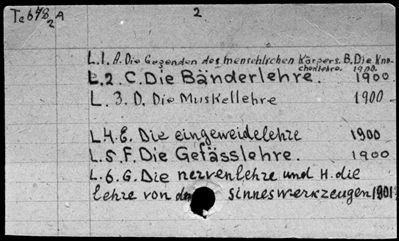 Te 678 2 A
2
L.1. A. Die Gegenden des menschlichen Körpers. B. Die Kno-
chenlehre. 1900.
L.2. C. Die Bänderlehre. 1900
L.3. D. Die Muskellehre 1900
L.4. E. Die eingeweidelehre 1900
L.5. F. Die Gefässlehre. 1900
L.6. G. Die nervenlehre und H. die
lehre von den sinneswerkzeugen 1901